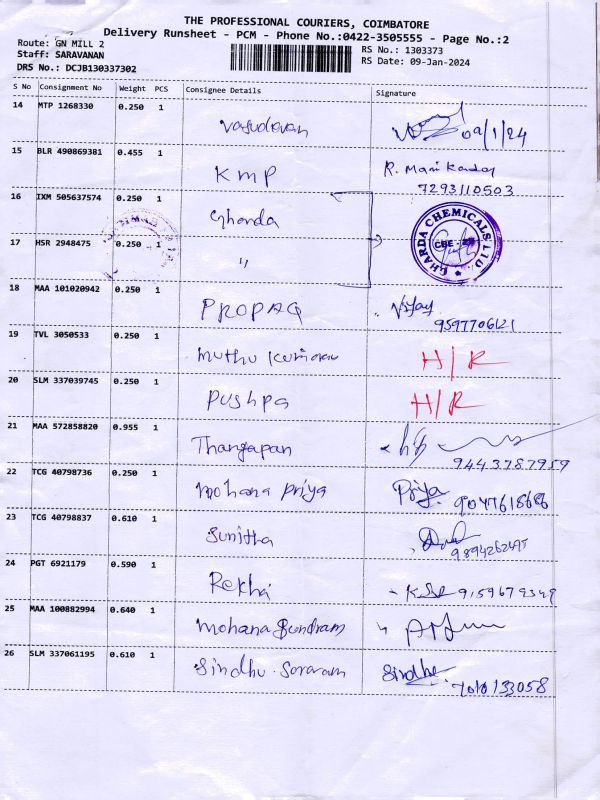 THE PROFESSIONAL COURIERS, COIMBATORE
Delivery Runsheet - PCM - Phone No.:0422-3505555 - Page No.:2
Route: GN MILL 2
Staff: SARAVANAN
DRS No.: DCJB130337302
RS No.: 1303373
RS Date: 09-Jan-2024
S No Consignment No Weight PCS Consignee Details Signature
14 MTP 1268330 0.250 1 Vasudevan 09/1/24
15 BLR 490869381 0.455 1 KMP R. Mani Kandan
7293110503
16 IXM 505637574 0.250 1 Gharda
GHARDA CHEMICALS LTD.
CBE
17 HSR 2948475 0.250 1 "
18 MAA 101020942 0.250 1 PROPAQ Vijay
9597706121
19 TVL 3050533 0.250 1 Muthu Kumaran H/R
20 SLM 337039745 0.250 1 Pushpa H/R
21 MAA 572858820 0.955 1 Thangapan
9443787959
22 TCG 40798736 0.250 1 Mohana Priya Priya 9047618686
23 TCG 40798837 0.610 1 Sunitha
9894262495
24 PGT 6921179 0.590 1 Rekha 9159679349
25 MAA 100882994 0.640 1 Mohana Sundram
26 SLM 337061195 0.610 1 Sindhu Saravam Sindhu
7010133058